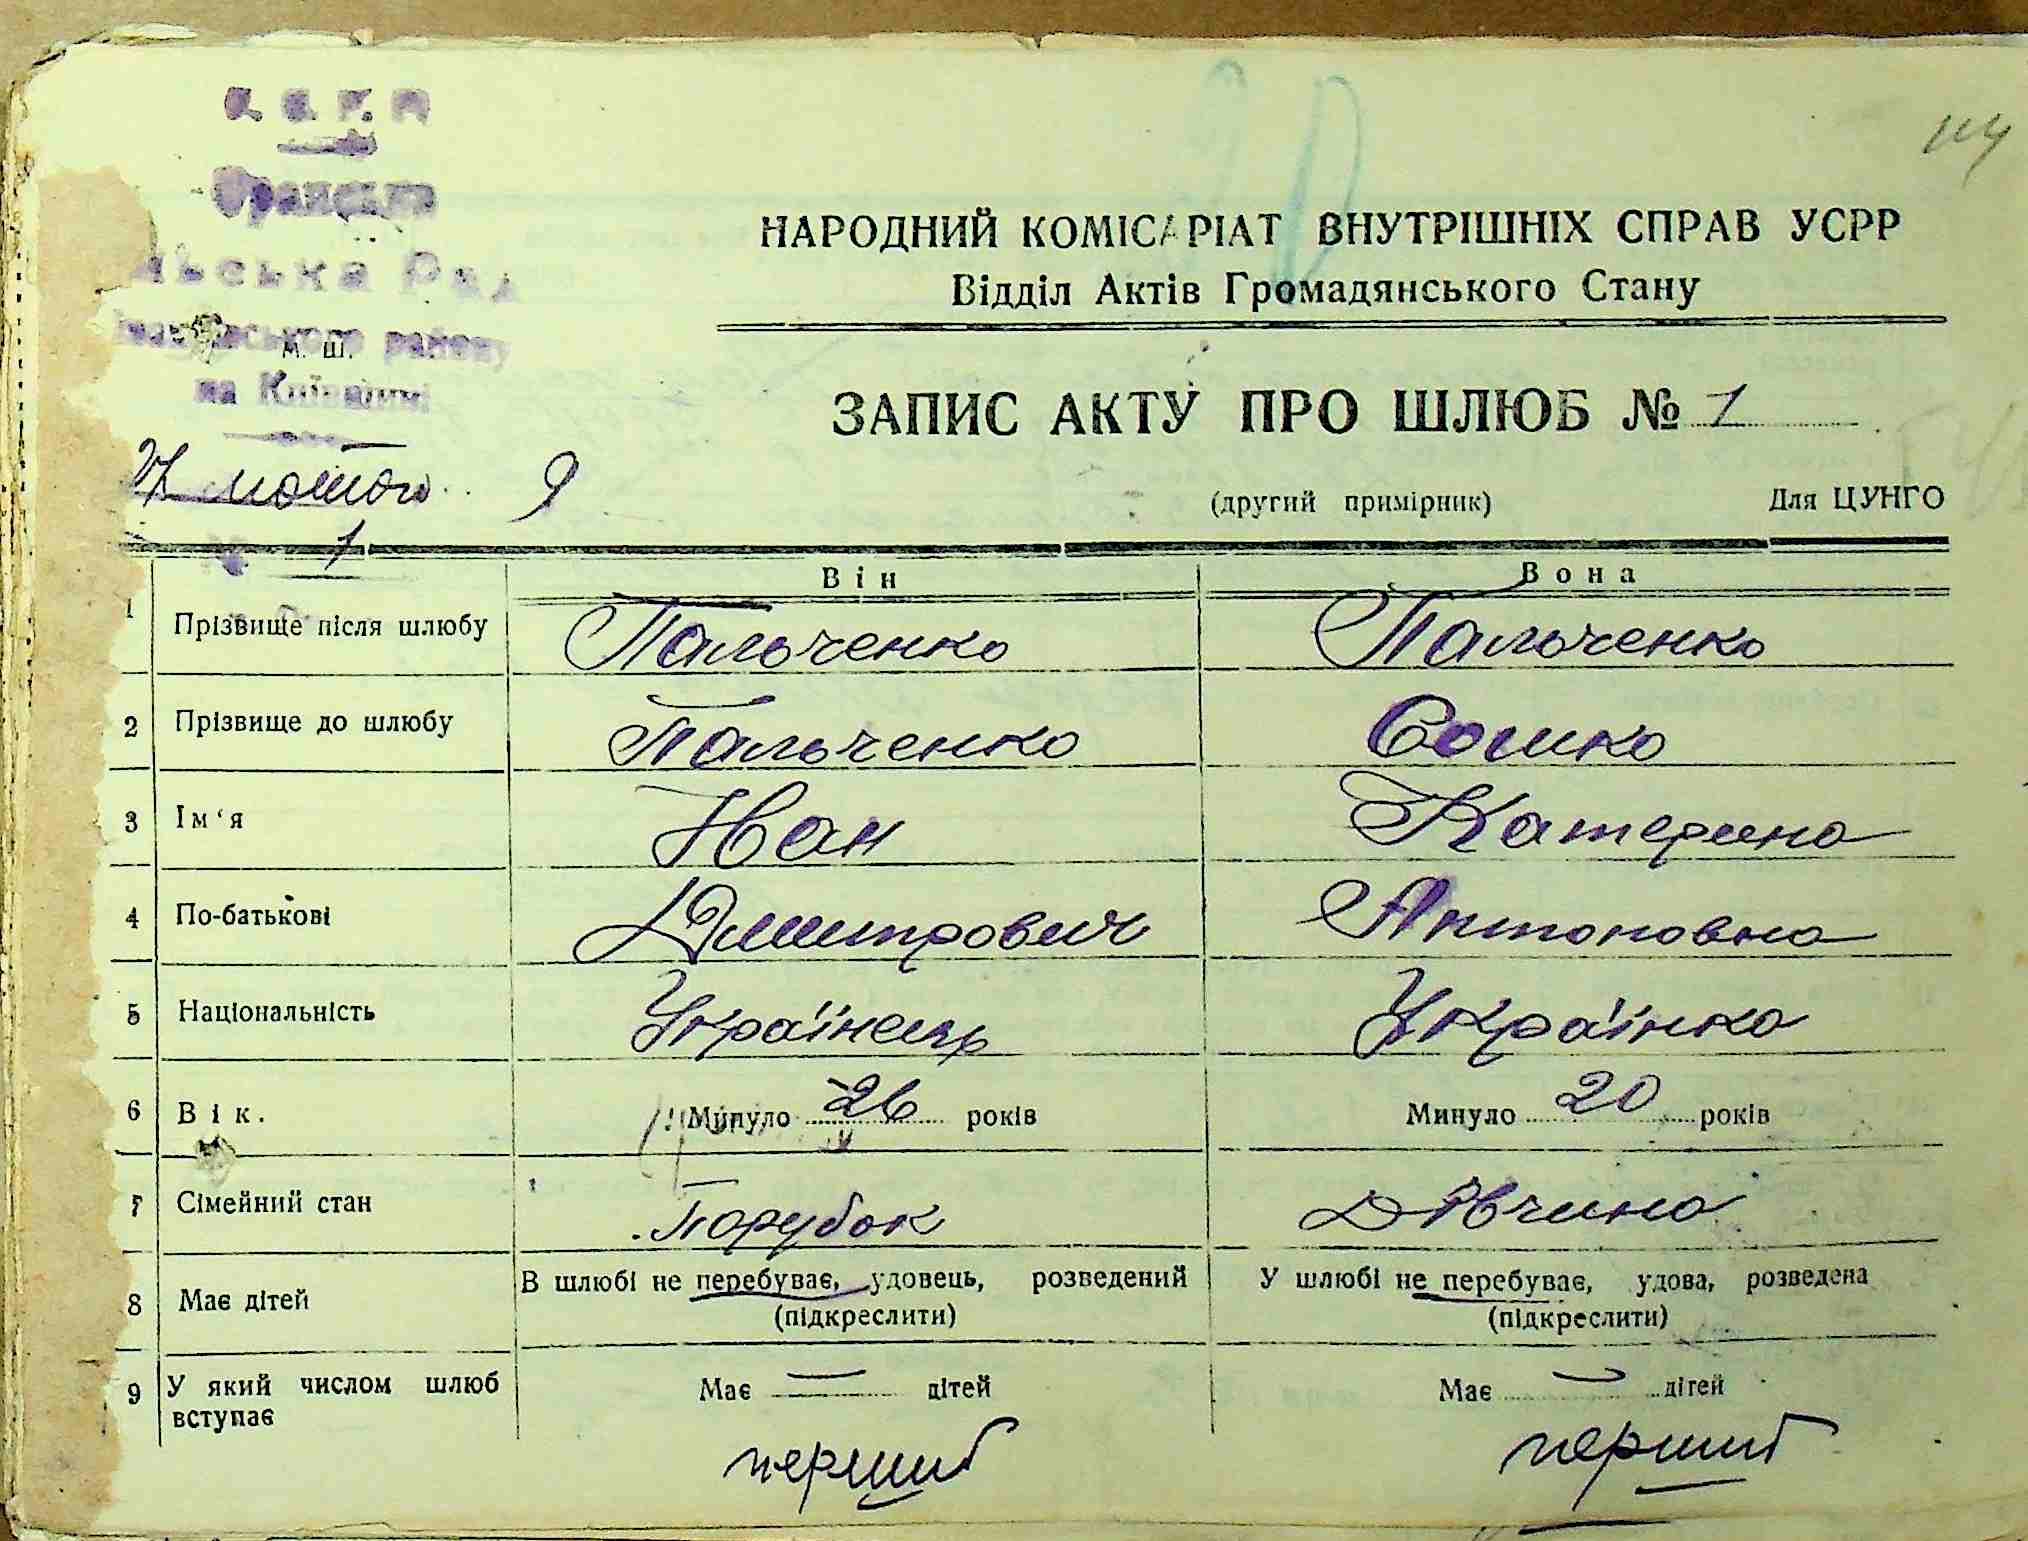 114
НАРОДНИЙ КОМІСАРІАТ ВНУТРІШНІХ СПРАВ УСРР
Відділ Актів Громадянського Стану
району
м. ш.
на Київщині
ЗАПИС АКТУ ПРО ШЛЮБ № 1
лютого 9
(другий примірник) Для ЦУНГО
1
Він Вона
1 Прізвище після шлюбу Пальченко Пальченко
2 Прізвище до шлюбу Пальченко Сошко
3 Ім‘я Іван Катерина
4 По-батькові Дмитрович Антоновна
5 Національність Українець Українка
6 Вік. Минуло 26 років Минуло 20 років
7 Сімейний стан Парубок Дівчина
8 Має дітей В шлюбі не перебуває, удовець, розведений У шлюбі не перебуває, удова, розведена
(підкреслити) (підкреслити)
9 У який числом шлюб вступає Має — дітей Має — дітей
перший перший